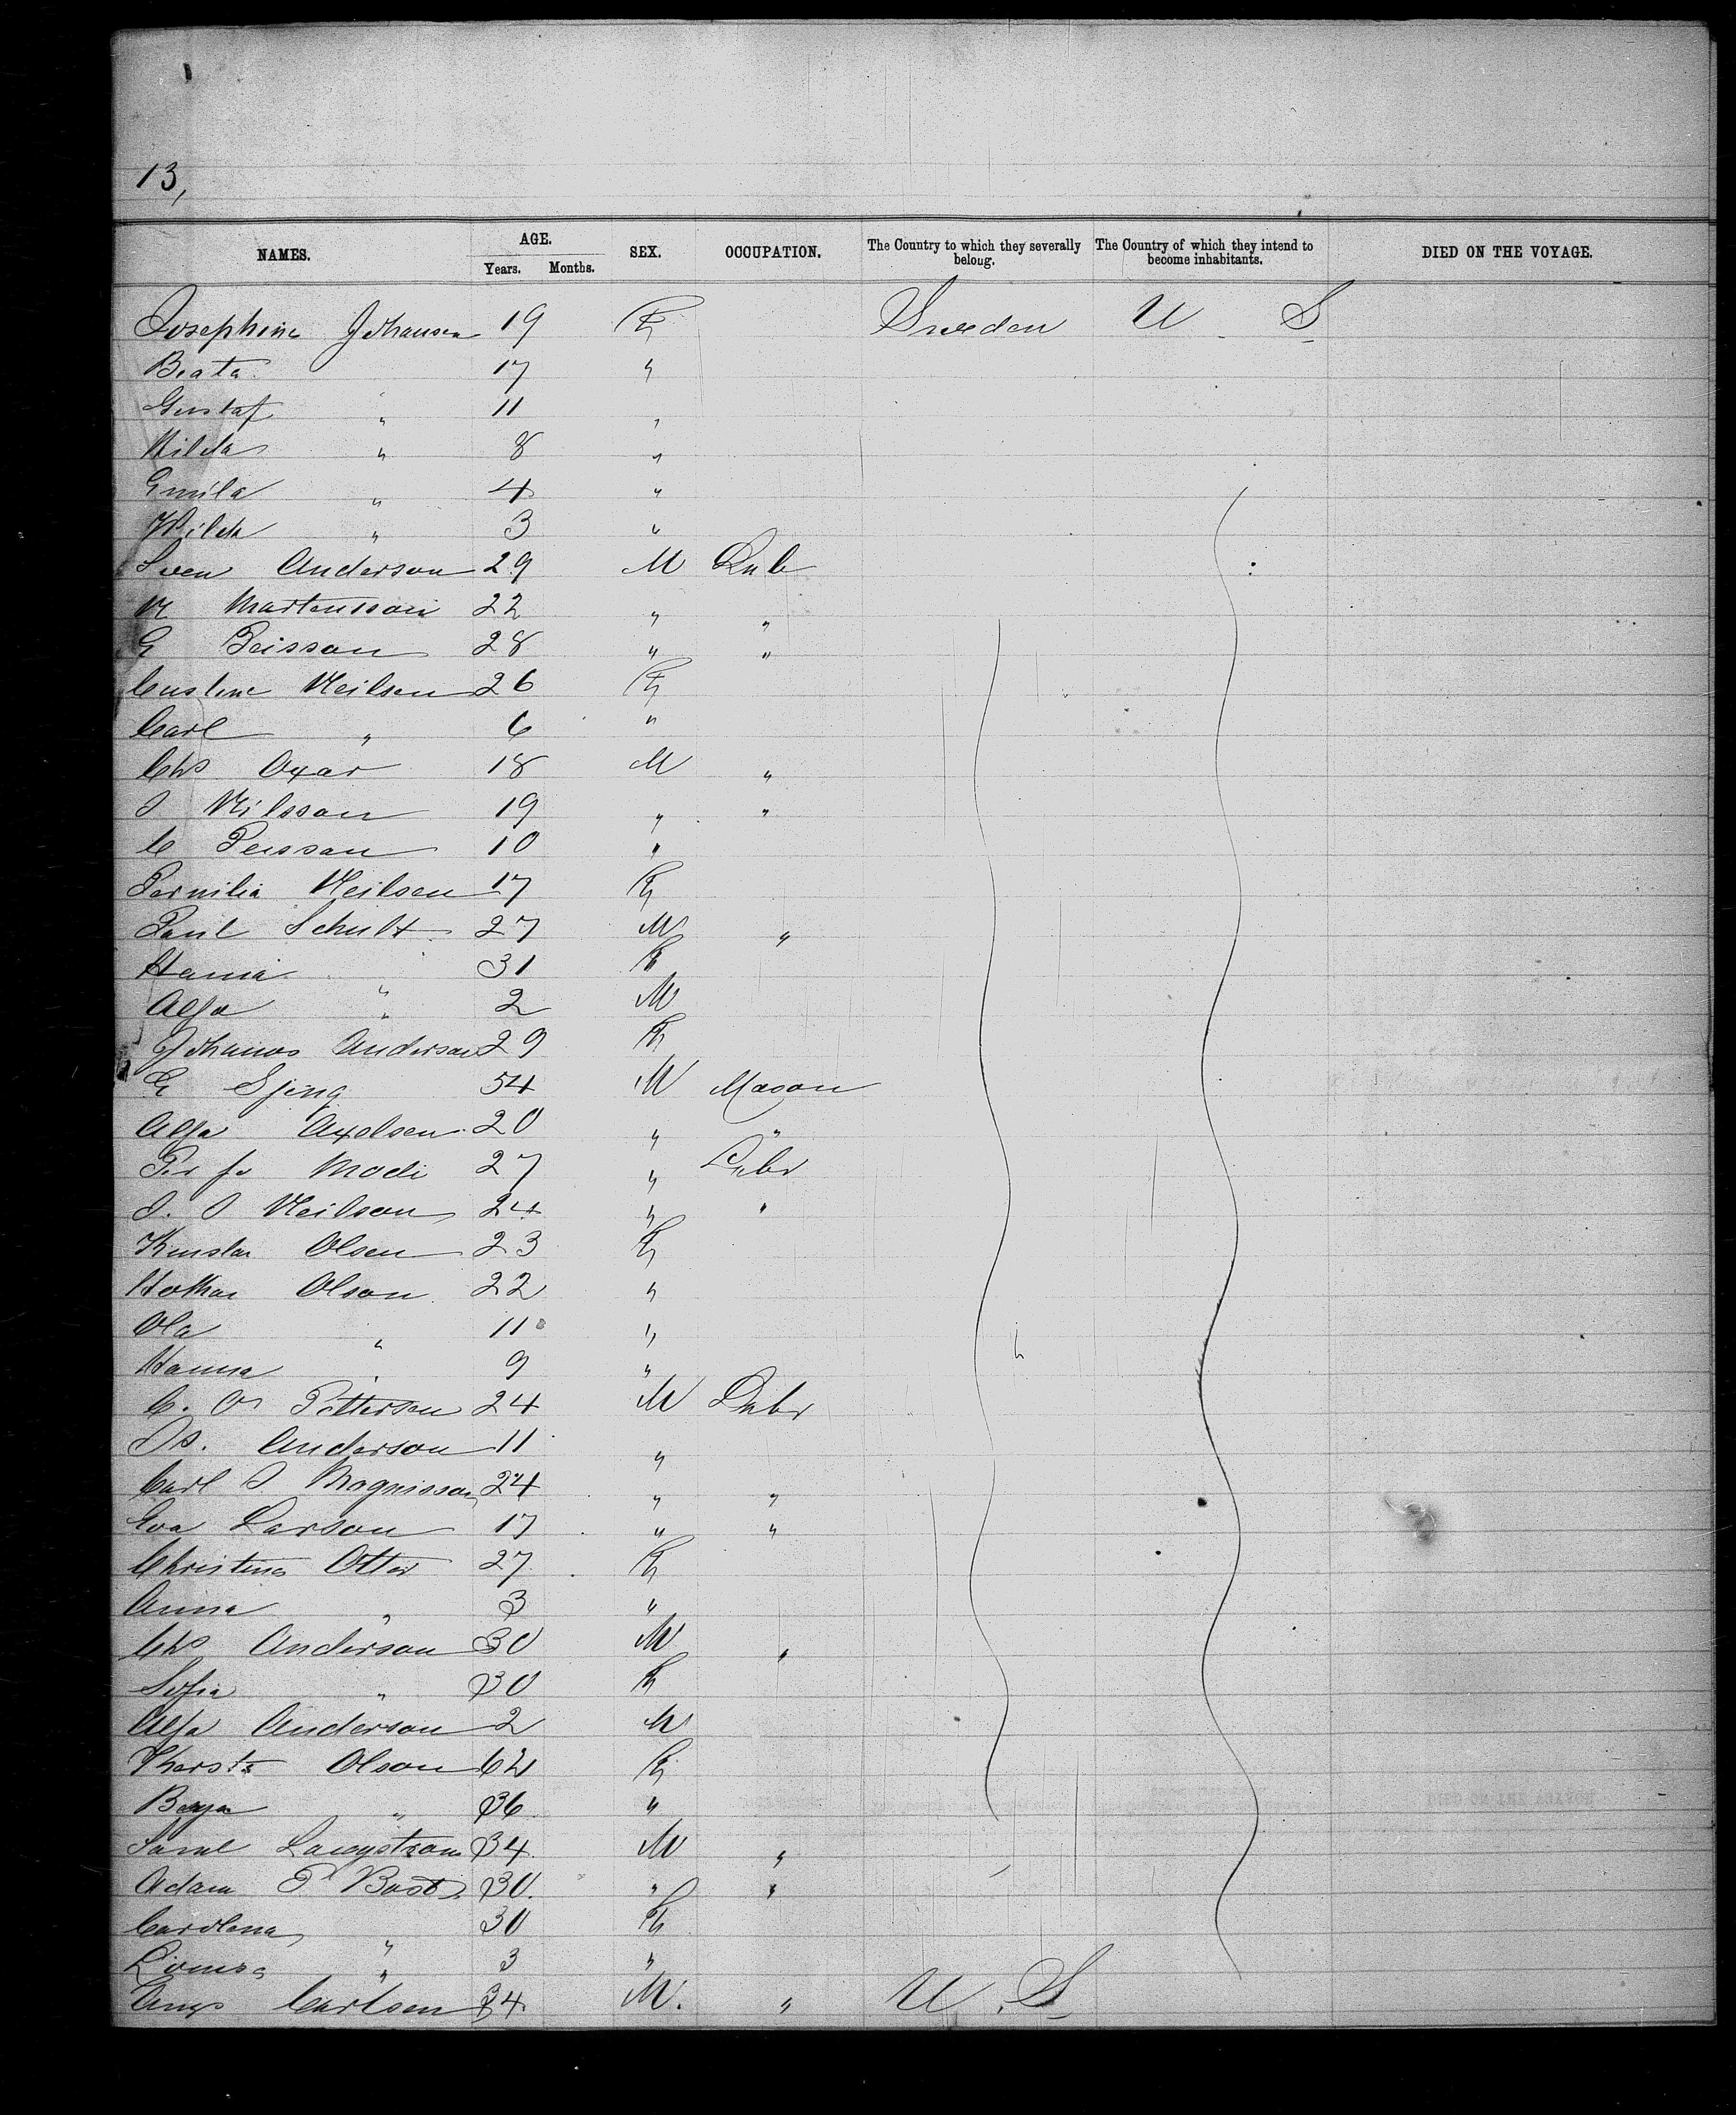 13,
NAMES. AGE. Years. Months. SEX. OCCUPATION. The Country to which they severally belong. The Country of which they intend to become inhabitants. DIED ON THE VOYAGE.
Josephine Johansen 19 F Sweden U S
Beata 17 "
Gustaf " 11 "
Hilda " 8 "
Emila " 4 "
Hilda " 3 "
Sven Anderson 29 M Lab
N Martensson 22 " "
G Peisson 28 " "
Neilsen 26 F
Carl " 6 "
Chs Oxar 18 M "
J Nilsson 19 " "
C Persson 10 "
Pernilia Neilsen 17 F
Paul Schult 27 M "
Hania " 31 F
Alfa " 2 M
Johannes Anderson 29 F
G Sjeng 54 M Mason
Alfa Axelsen 20 " "
Per Jo Modi 27 " Labr
J. J Neilson 24 " "
Olsen 23 F
Olson 22 "
Ola " 11 "
Hanna " 9 "
C. O Petterson 24 M Labr
Js. Anderson 11 "
Carl J Magnisson 24 " "
Eva Larson 17 " "
Christina Otter 27 F
Anna " 3 "
Chs Anderson 30 M "
Sofia " 30 F
Alfa Anderson 2 M
Kersta Olson 62 F
Benja " 36 "
Saml Langstrom 34 M "
Adam P Bost 30 " "
Carolena " 30 F
Louisa " 3 "
Aug Carlsen 34 M. " U. S